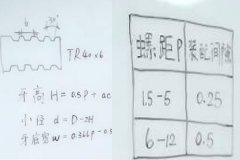 6
30°
TR40×6
牙高 H=0.5P+ac
小径 d=D-2H
牙底宽 w=0.366P-0.5
螺距P 装配间隙
1.5-5 0.25
6-12 0.5